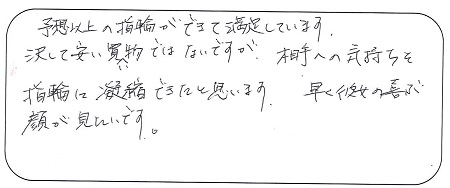 予想以上の指輪ができて満足しています。
決して安い買物ではないですが、相手への気持ちを
指輪に凝縮できたと思います。 早く彼女の喜ぶ
顔が見たいです。